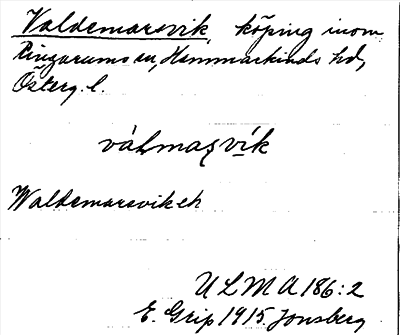 Valdemarsvik, köping inom
Ringarums sn, Hammarkinds hd,
Österg. l.
váLmaʂvík
Waldemarsvik ek
ULMA 186:2
E. Grip 1915. Jonsberg